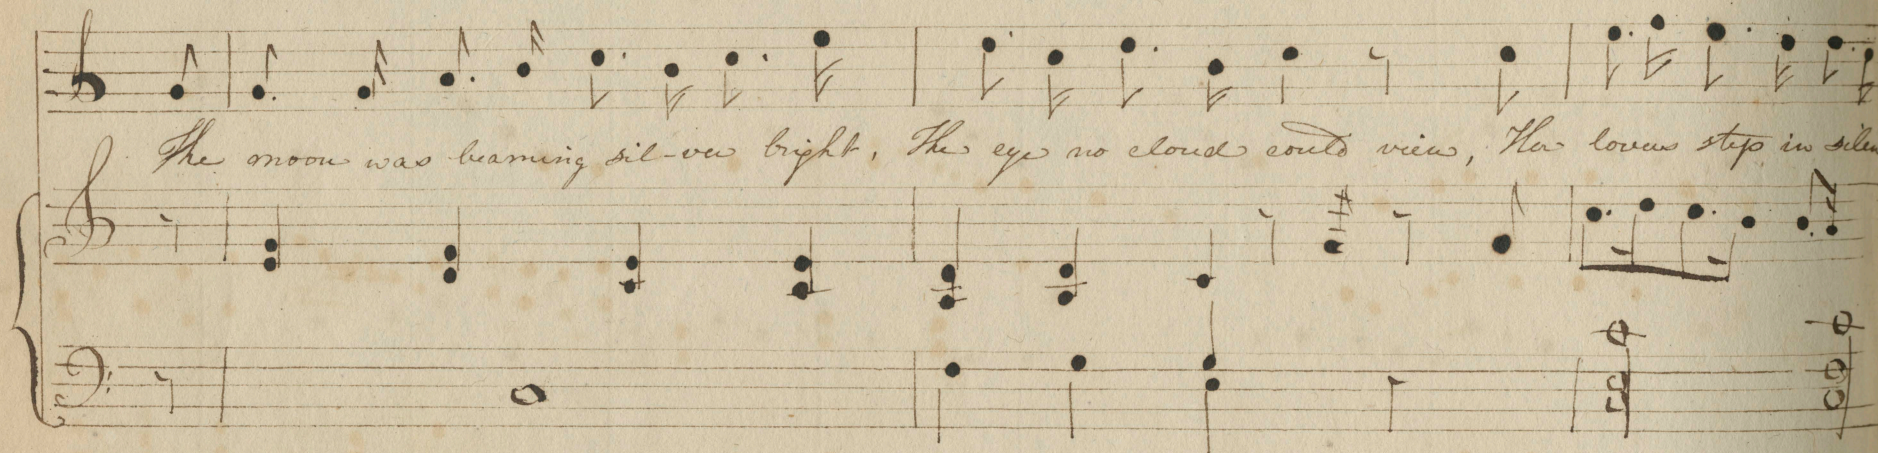 The moon was beaming sil-ver bright, The eye no cloud could view, Her lovers step in silen